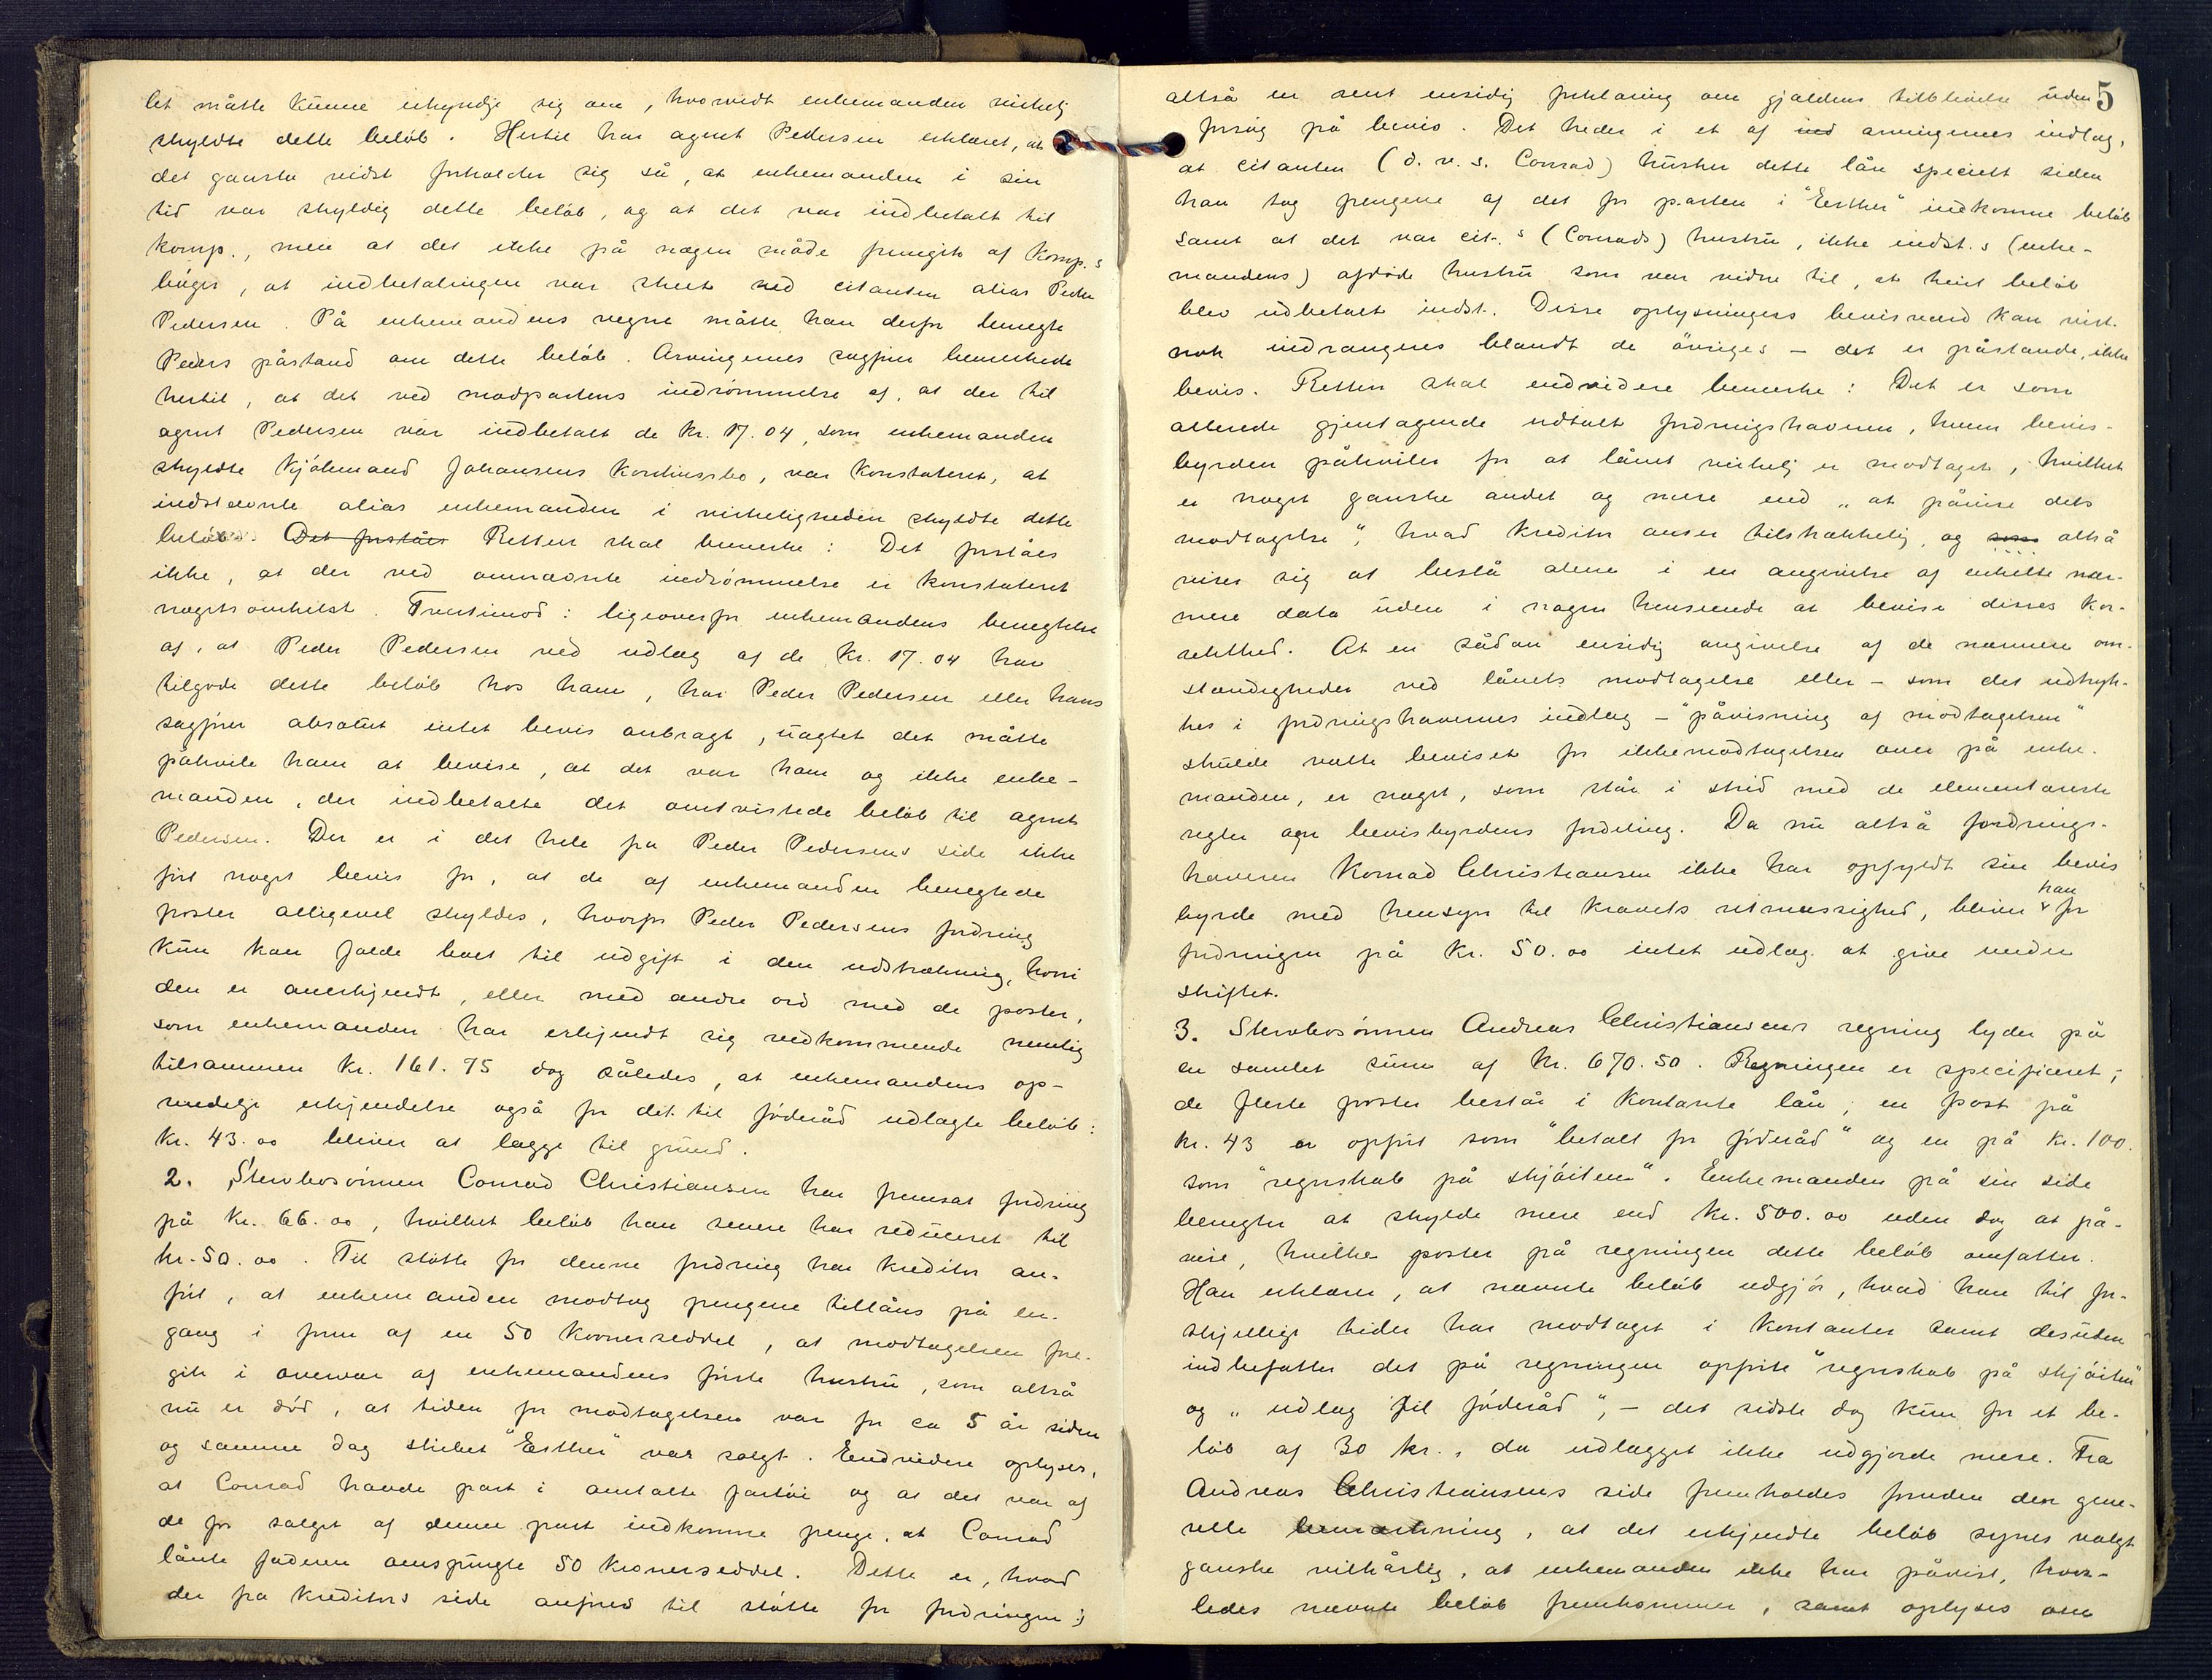 let måtte kunne erkyndje sig om, hvorvidt enkemanden virkelig
skyldte dette beløb. Hertil har agent Pedersen erklæret, at
det ganske vidst forholder sig så, at enkemanden i sin
tid var skyldig dette beløb, og at det var indbetalt til
komp., men at det ikke på nogen måde fremgik af komp.s
bøger, at indbetalingen var skeet ved citanten alias Peder
Pedersen. På enkemandens vegne måtte han derfor benegte
Peders påstand om dette beløb. Arvingernes sagfører bemerkede
hertil, at det ved modpartens indrømmelse af, at der til
agent Pedersen var indbetalt de kr. 17.04, som enkemanden
skyldte kjøbmand Johansens konkursbo, var konstateret, at
indstevnte alias enkemanden i virkeligheden skyldte dette
beløb. Det forståes Retten skal bemerke: Det forståes
ikke, at der ved omnævnte indrømmelse er konstateret
nogetsomhelst. Tvertimod: ligeoverfor enkemandens benegtelse
af, at Peder Pedersen ved udlæg af de kr. 17.04 har
tilgode dette beløb hos ham, har Peder Pedersen eller hans
sagfører absolut intet bevis anbragt, uagtet det måtte
påhvile ham at bevise, at det var ham og ikke enke-
manden, der indbetalte det omtvistede beløb til agent
Pedersen. Der er i det hele fra Peder Pedersens side ikke
ført noget bevis for, at de af enkemanden benegtede
poster alligevel skyldes, hvorfor Peder Pedersens fordring
kun kan falde boet til udgift i den udstrækning, hvori
den er anerkjendt, eller med andre ord med de poster,
som enkemanden har erkjendt sig vedkommende nemlig
tilsammen kr. 161.75 dog således, at enkemandens op-
rindelige erkjendelse også for det til føderåd udlagte beløb:
kr. 43.00 bliver at lægge til grund.
2. Stervbosønnen Conrad Christiansen har fremsat fordring
på kr. 66.00, hvilket beløb han senere har reduceret til
kr. 50.00. Til støtte for denne fordring har kreditor an-
ført, at enkemanden modtog pengene tillåns på en-
gang i form af en 50 kroneseddel, at modtagelsen fore-
gik i overvær af enkemandens første hustru, som altså
nu er død, at tiden for modtagelsen var for ca 5 år siden
og samme dag skibet "Esther" var solgt. Endvidere oplyses,
at Conrad havde part i omtalte fartøi og at det var af
de for salget af denne part indkomne penge, at Conrad
lånte faderen omspurgte 50 kroneseddel. Dette er, hvad
der fra kreditors side anføres til støtte for fordringen;
5
altså en rent ensidig forklaring om gjældens tilblivelse uden
forsøg på bevis. Det heder i et af ind arvingernes indlæg,
at citanten (d. v. s. Conrad) husker dette lån specielt siden
han tog pengene af det for parten i "Esther" indkomne beløb
samt at det var cit.s (Conrads) hustru, ikke indst.s (enke-
mandens) afdøde hustru som var vidne til, at heint beløb
blev udbetalt indst. Disse oplysningers bevisværd kan vist-
nok indrangeres blandt de øvriges – det er påstande, ikke
bevis. Retten skal endvidere bemerke: Det er som
allerede gjentagende udtalt fordringshaveren, hvem bevis-
byrden påhviler for at lånet virkelig er modtaget, hvilket
er noget ganske andet og mere end „at påvise dets
modtagelse", hvad kreditor anser tilstrækkelig, og som altså
viser sig at bestå alene i en angivelse af enkelte nær-
mere data uden i nogen henseende at bevise disses kor-
rekthed. At en sådan ensidig angivelse af de nærmere om-
stændigheder ved lånets modtagelse eller – som det udtryk-
kes i fordringshaverens indlæg – "påvisning af modtagelsen"
skulde velte beviset for ikkemodtagelsen over på enke-
manden, er noget, som står i strid med de elementæreste
regler om bevisbyrdens fordeling. Da nu altså fordrings-
haveren Konrad Christiansen ikke har opfyldt sin bevis
byrde med hensyn til kravets retmæssighed, bliver han for
fordringen på kr. 50.00 intet udlæg at give under
skiftet.
3. Stervbosønnen Andreas Christiansens regning lyder på
en samlet sum af kr. 670.50. Regningen er specificeret;
de fleste poster består i kontante lån; en post på
kr. 43 er opført som "betalt for føderåd" og en på kr. 100.
som "regnskab på skjøiten". Enkemanden på sin side
benegter at skylde mere end kr. 500.00 uden dog at på-
vise, hvilke poster på regningen dette beløb omfatter.
Han erklærer, at nævnte beløb udgjør, hvad han til for-
skjellige tider har modtaget i kontanter samt desuden
indbefatter det på regningen opførte "regnskab på skjøiten"
og „udlæg til føderåd", – det sidste dog kun for et be-
løb af 30 kr., da udlægget ikke udgjorde mere. Fra
Andreas Christiansens side fremholdes foruden den gene-
relle bemærkning, at det erkjendte beløb synes valgt
ganske vilkårlig, at enkemanden ikke har påvist, hvor-
ledes nævnte beløb fremkommer, samt oplyses om